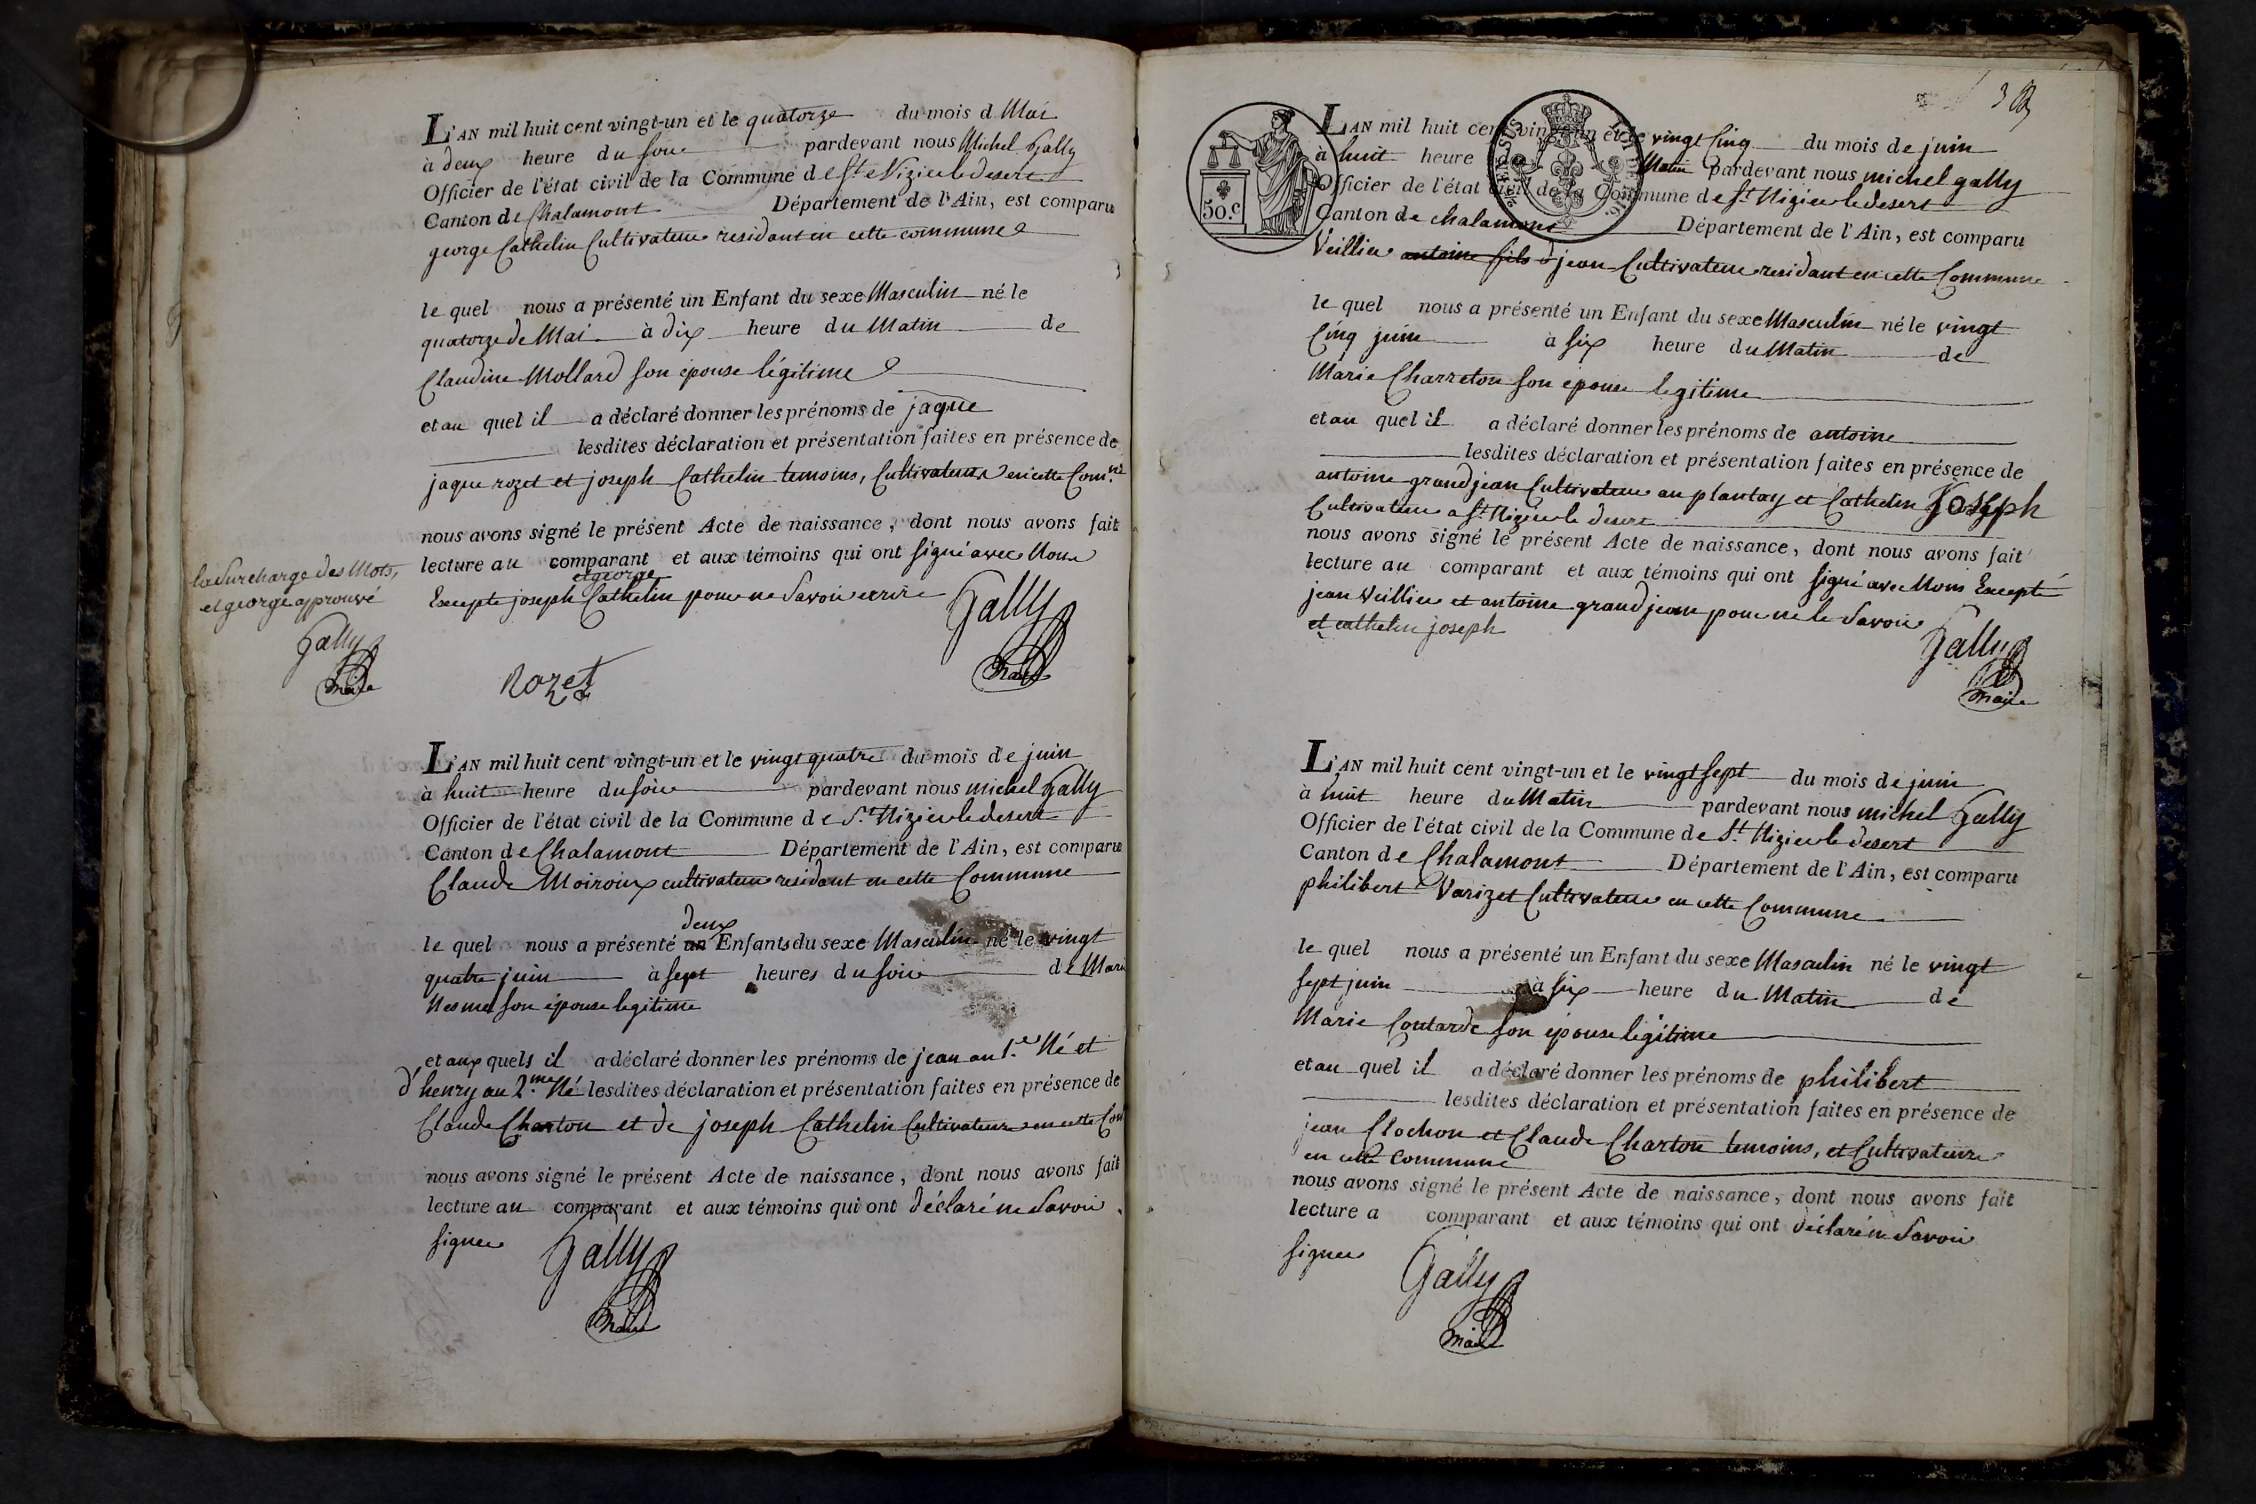 L'AN mil huit cent vingt-un et le quatorze du mois d Mai
à deux heure du soir pardevant nous Michel Gally
Officier de l'état civil de la Commune de St Nizier le desert
Canton de Chalamont Département de l'Ain, est comparu
george Cathelin Cultivateur residant en cette commune
le quel nous a présenté un Enfant du sexe Masculin né le
quatorze de Mai à dix heure du Matin de
Claudine Mollard son épouse légitime
et au quel il a déclaré donner les prénoms de jaque
lesdites déclaration et présentation faites en présence de
jaque rozet et joseph Cathelin temoins, Cultivateurs en cette Com.ne
nous avons signé le présent Acte de naissance, dont nous avons fait
lecture au comparant et aux témoins qui ont signé avec Nous
et george
Excepte joseph Cathelin pour ne Savoir ecrire
la Surcharge des Mots,
et george approuvé
Gally
maire
Rozet
Gally
maire
L'AN mil huit cent vingt-un et le vingt quatre du mois de juin
à huit heure du soir pardevant nous michel Gally
Officier de l'état civil de la Commune de St Nizier le desert
Canton de Chalamont Département de l'Ain, est comparu
Claude Moiroux cultivateur residant en cette Commune
deux
le quel nous a présenté un Enfants du sexe Masculin né le vingt
quatre juin à sept heures du soir de Marie
Nesme son épouse legitime
et aux quels il a déclaré donner les prénoms de jean au 1.er Né et
d'henry au 2.me Né lesdites déclaration et présentation faites en présence de
Claude Charton et de joseph Cathelin Cultivateurs en cette Com
nous avons signé le présent Acte de naissance, dont nous avons fait
lecture au comparant et aux témoins qui ont déclaré ne Savoir
signer
Gally
maire
50.c
L'AN mil huit cent vingt-un et le vingt Cinq du mois de juin
à huit heure Matin pardevant nous michel gally
Officier de l'état civil de la Commune de St Nizier le desert
Canton de chalamont Département de l'Ain, est comparu
Veillier antoine fils d jean Cultivateur residant en cette Commune
le quel nous a présenté un Enfant du sexe Masculin né le vingt
Cinq juin à six heure du Matin de
Marie Charreton son épouse legitime
et au quel il a déclaré donner les prénoms de antoine
lesdites déclaration et présentation faites en présence de
antoine grandjean Cultivateur au plantay et Cathelin Joseph
Cultivateur a St Nizier le desert
nous avons signé le présent Acte de naissance, dont nous avons fait
lecture au comparant et aux témoins qui ont signé avec Nous Excepté
jean Veillier et antoine grandjean pour ne le Savoir
et cathelin joseph
Gally
maire
L'AN mil huit cent vingt-un et le vingt sept du mois de juin
à huit heure du Matin pardevant nous michel Gally
Officier de l'état civil de la Commune de St Nizier le desert
Canton de Chalamont Département de l'Ain, est comparu
philibert Varizet Cultivateur en cette Commune
le quel nous a présenté un Enfant du sexe Masculin né le vingt
sept juin à six heure du Matin de
Marie Coutarde son épouse legitime
et au quel il a déclaré donner les prénoms de philibert
lesdites déclaration et présentation faites en présence de
jean Clochon et Claude Charton temoins, et Cultivateurs
en cette commune
nous avons signé le présent Acte de naissance, dont nous avons fait
lecture a comparant et aux témoins qui ont déclaré ne Savoir
signer
Gally
maire